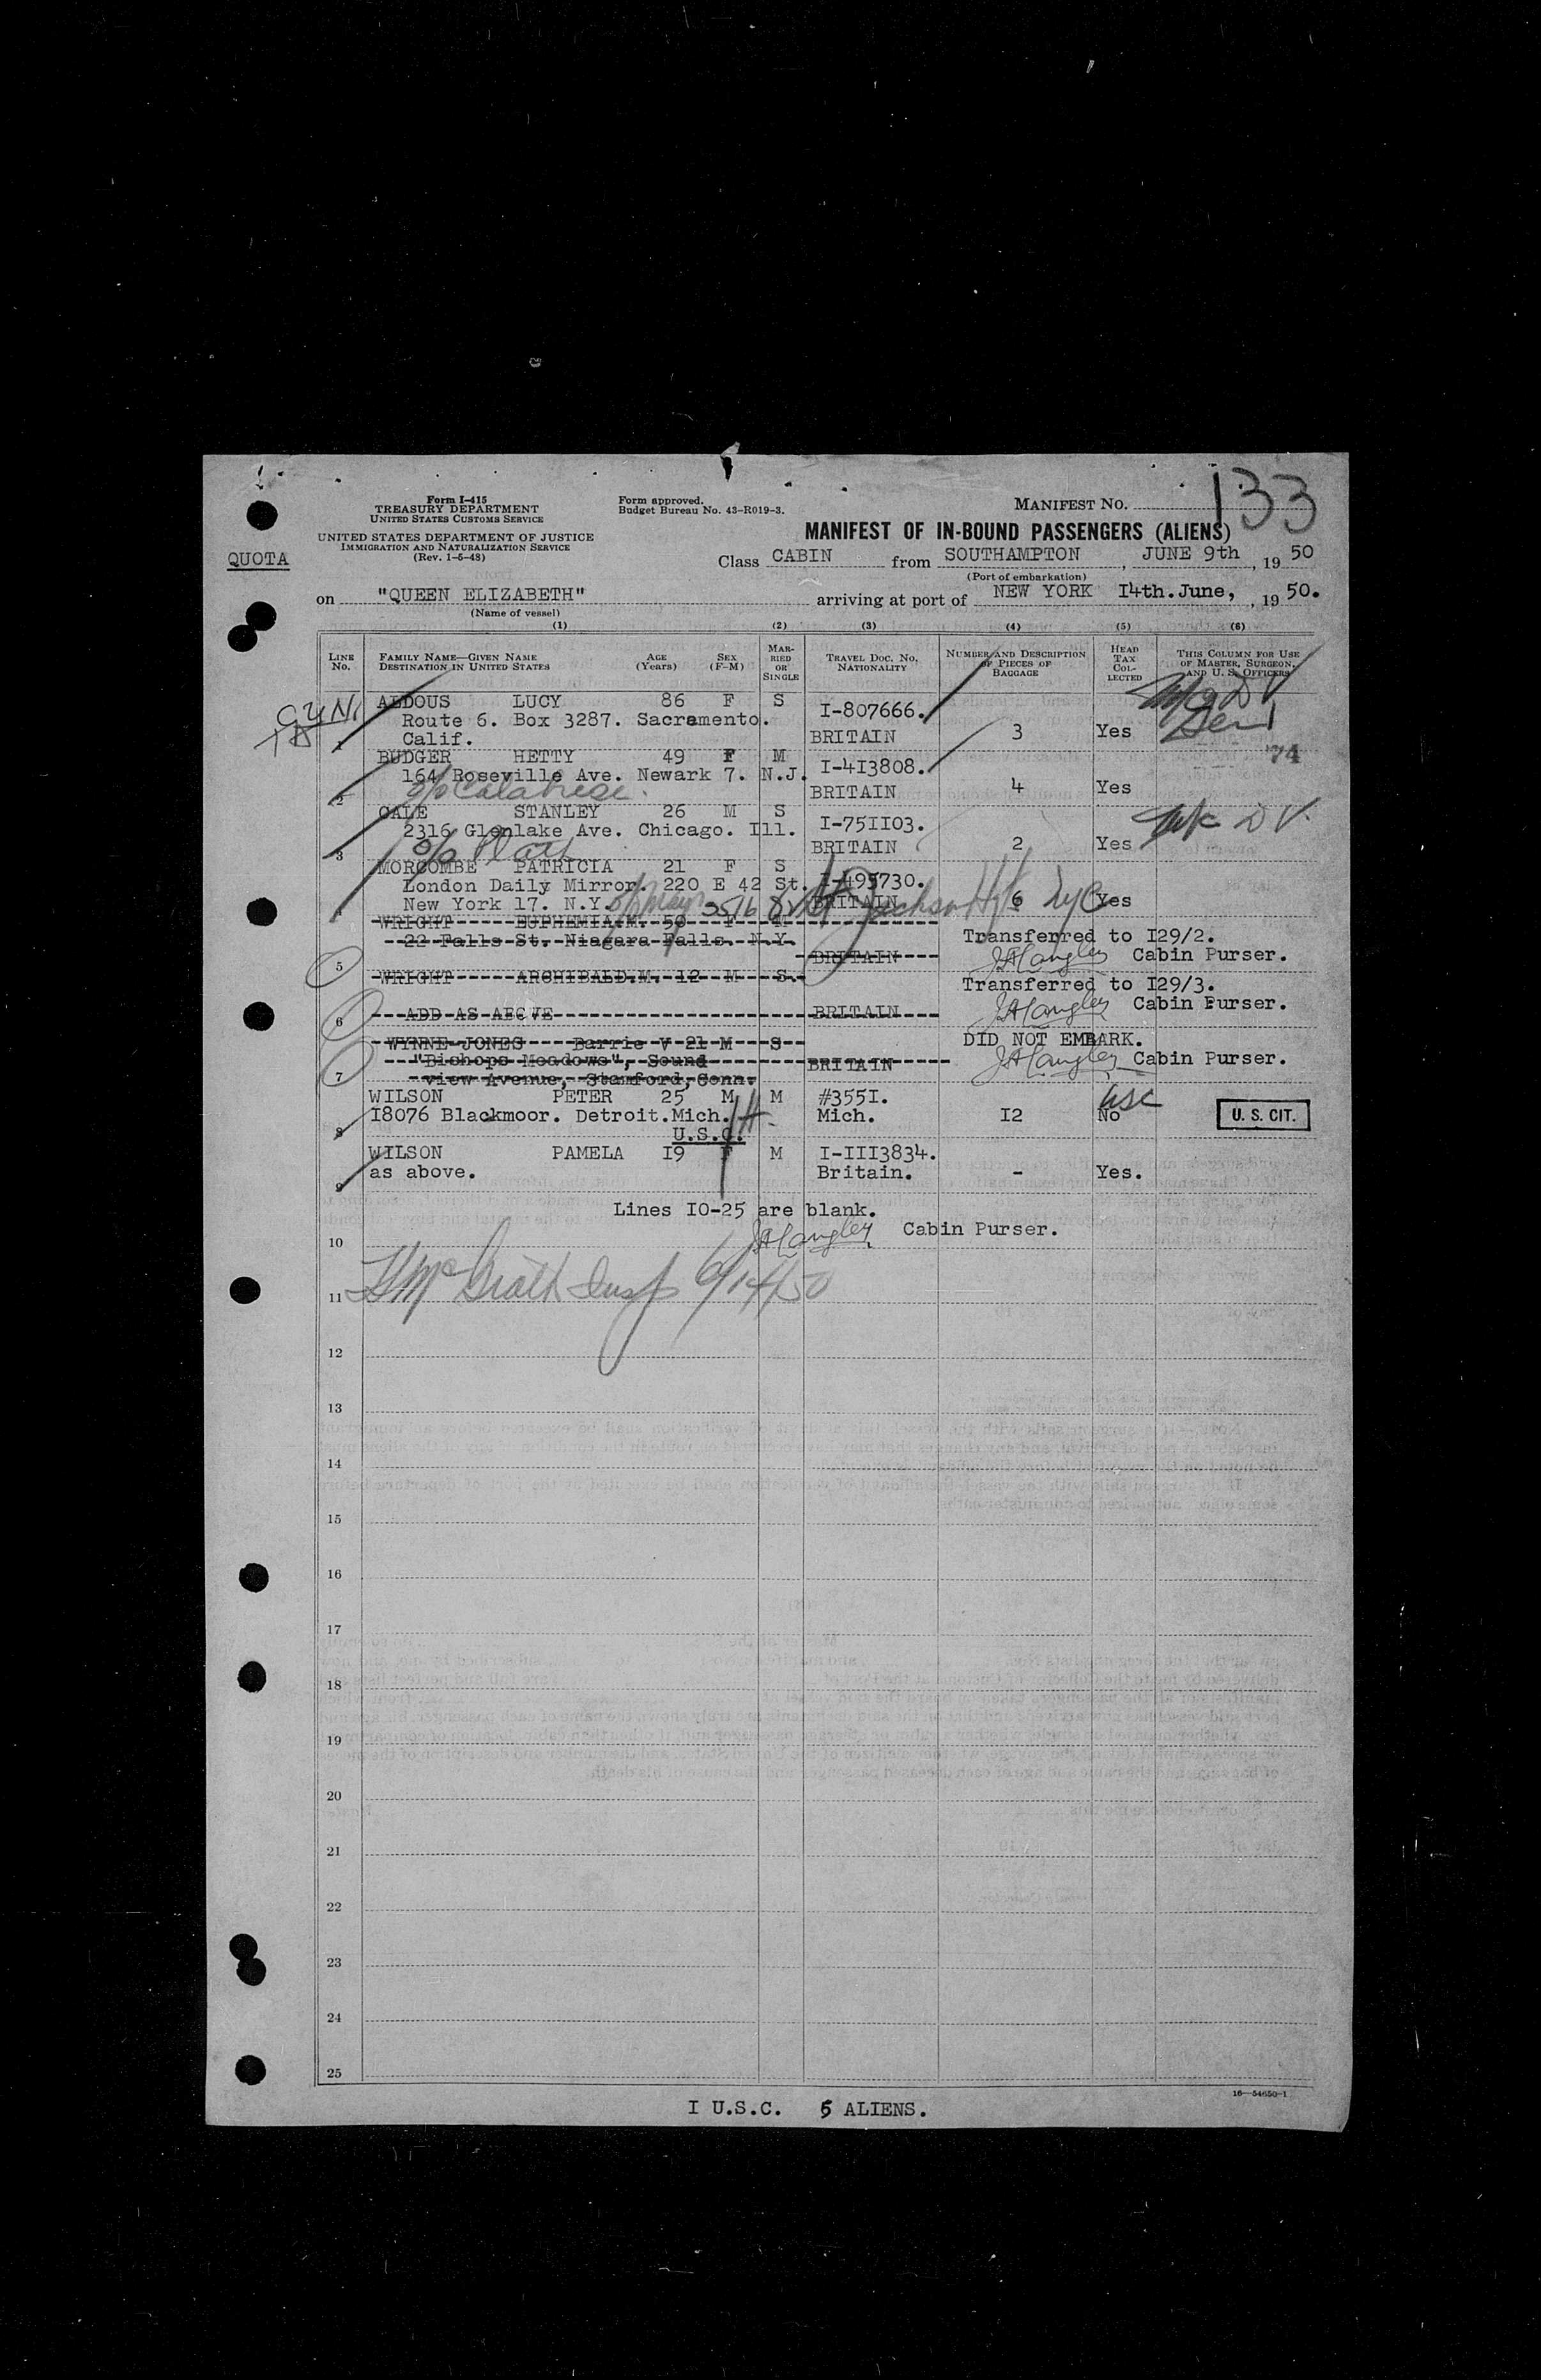 133
Form I-415
TREASURY DEPARTMENT
UNITED STATES CUSTOMS SERVICE
Form approved.
Budget Bureau No. 43-R019-3.
MANIFEST NO.
UNITED STATES DEPARTMENT OF JUSTICE
IMMIGRATION AND NATURALIZATION SERVICE
(Rev. 1-5-48)
MANIFEST OF IN-BOUND PASSENGERS (ALIENS)
QUOTA
Class CABIN from SOUTHAMPTON, JUNE 9th, 19 50
(Port of embarkation)
on "QUEEN ELIZABETH" arriving at port of NEW YORK I4th.June, , 19 50.
(Name of vessel)
(1) (2) (3) (4) (5) (6)
LINE NO.
FAMILY NAME—GIVEN NAME
DESTINATION IN UNITED STATES
AGE (Years)
SEX (F-M)
MARRIED OR SINGLE
TRAVEL DOC. NO. NATIONALITY
NUMBER AND DESCRIPTION OF PIECES OF BAGGAGE
HEAD TAX COLLECTED
THIS COLUMN FOR USE OF MASTER, SURGEON, AND U. S. OFFICERS
ALDOUS LUCY 86 F S I-807666.
Route 6. Box 3287. Sacramento.
1 Calif. BRITAIN 3 Yes
74
BUDGER HETTY 49 F M I-4I3808.
164 Roseville Ave. Newark 7. N.J.
2 c/o Calabrese. BRITAIN 4 Yes
GALE STANLEY 26 M S I-75II03.
2316 Glenlake Ave. Chicago. Ill.
3 c/o BRITAIN 2 Yes
MORCOMBE PATRICIA 21 F S I-495730.
London Daily Mirror. 220 E 42 St.
4 New York 17. N.Y. BRITAIN 6 Yes
c/o 3516 Jackson Hts NYC
WRIGHT EUPHEMIA.M. 50 F M
22 Falls St. Niagara Falls. N.Y. Transferred to I29/2.
5 BRITAIN JHLangley Cabin Purser.
WRIGHT ARCHIBALD.M. 12 M S. Transferred to I29/3.
6 ADD AS ABOVE BRITAIN JHLangley Cabin Purser.
WYNNE-JONES Barrie V 21 M S DID NOT EMBARK.
"Bishops Meadows", Sound BRITAIN JHLangley Cabin Purser.
7 view Avenue, Stamford, Conn.
WILSON PETER 25 M M #355I. USC
I8076 Blackmoor. Detroit.Mich. Mich. I2 No U. S. CIT.
8 U.S.C.
WILSON PAMELA I9 F M I-III3834.
9 as above. Britain. - Yes.
Lines IO-25 are blank.
10 JHLangley Cabin Purser.
11 McGrath Insp 6/14/50
12
13
14
15
16
17
18
19
20
21
22
23
24
25
16—54650-1
I U.S.C. 5 ALIENS.